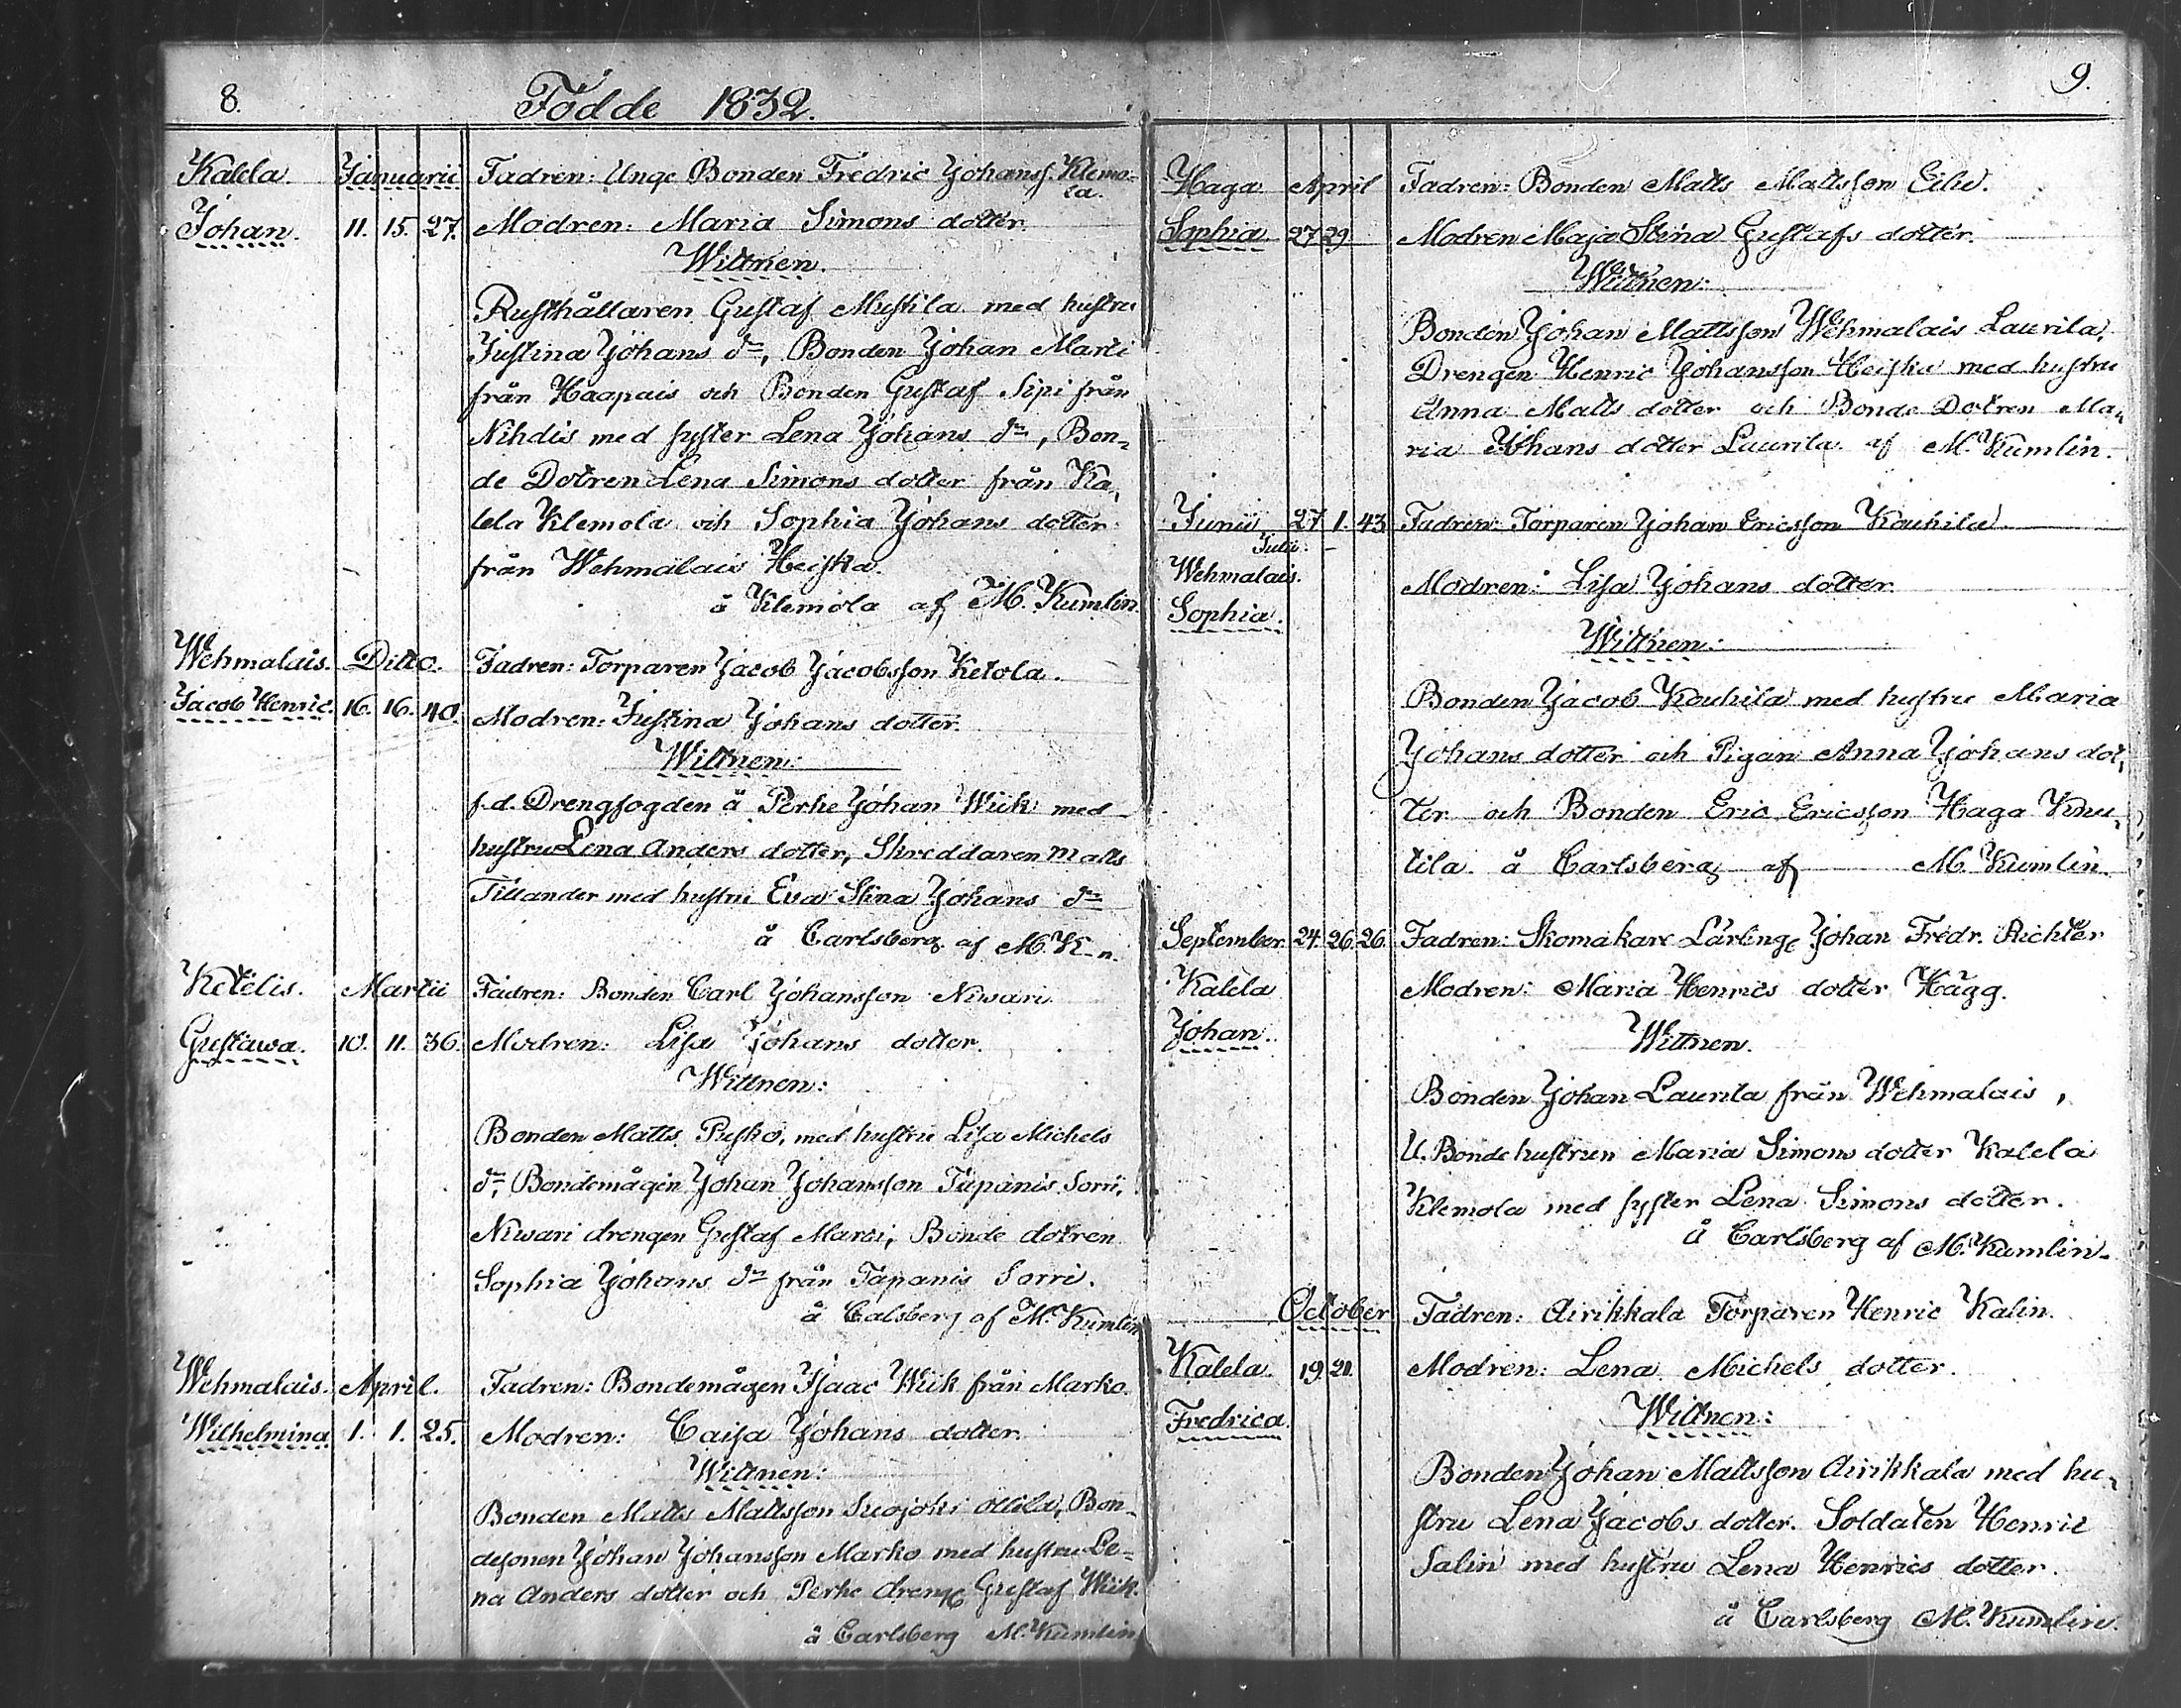 8.
Födde 1832.
Kalela. Januarii Fadren: Unge Bonden Fredric Johanss. Klemo=
la.
Johan. 11. 15. 27. Modren: Maria Simons dotter.
Wittnen.
Rusthållaren Gustaf Mustila med hustru
Justina Johans dr, Bonden Johan Marti
från Haapais och Bonden Gustaf Sipi från
Nihdis med syster Lena Johans dr, Bon=
de Dotren Lena Simons dotter från Ka,
lela Klemola och Sophia Johans dotter
från Wehmalais Heiska.
å Klemola af M. Kumlin
Wehmalais. Ditto. Fadren: Torparen Jacob Jacobsson Ketola.
Jacob Henric. 16. 16. 40. Modren: Justina Johans dotter.
Wittnen:
f.d. Drengfogden å Perhe Johan Wiik med
hustru Lena Anders dotter, Skreddaren Matts
Tillander med hustru Eva Stina Johans dr
å Carlsberg af M. K-n.
Ketelis. Martii Fadren: Bonden Carl Johansson Niwari
Gustawa. 10. 11. 36. Modren: Lisa Johans dotter.
Wittnen:
Bonden Matts Pusko, med hustru Lisa Michels
dr, Bondemågen Johan Johansson Tapanis Sorri,
Niwari drengen Gustaf Marti, Bonde dotren
Sophia Johans dr från Tapanis Sorri.
å Calsberg af M. Kumlin
Wehmalais. April. Fadren: Bondemågen Isaac Wiik från Marko.
Wilhelmina 1. 1. 25. Modren: Caisa Johans dotter.
Wittnen:
Bonden Matts Mattsson Suojoki Ollila, Bon=
desonen Johan Johansson Marko med hustru Le=
na Anders dotter och Perhe dreng Gustaf Wiik.
å Carlsberg M. Kumlin
9.
Haga April Fadren: Bonden Matts Mattsson Eilu.
Sophia 27 29 Modren Maja Stina Gustafs dotter.
Wittnen:
Bonden Johan Mattsson Wehmalais Laurila,
Drengen Henric Johansson Heiska med hustru
Anna Matts dotter och Bonde Dotren Ma,
ria Johans dotter Laurila. af M. Kumlin.
Junii 27 1. 43 Fadren: Torparen Johan Ericsson Kouhila
Julii.
Wehmalais.
Modren: Lisa Johans dotter.
Sophia.
Wittnen:
Bonden Jacob Kouhila med hustru Maria
Johans dotter och Pigan Anna Johans dot,
ter och Bonden Eric Ericsson Haga Knu,
tila å Carlsberg af M. Kumlin.
September 24. 26. 26. Fadren: Skomakare Lärlinge Johan Fredr. Richter
Kalela Modren: Maria Henrics dotter Hägg.
Johan. Wittnen.
Bonden Johan Laurila från Wehmalais,
U. Bondehustrun Maria Simons dotter Kalela
Klemola med syster Lena Simons dotter.
å Carlsberg af M. Kumlin.
October Fadren: Airikkala Torparen Henric Kalin.
Kalela. 19. 21. Modren: Lena Michels dotter.
Fredrica. Wittnen:
Bonden Johan Mattsson Airikkala med hu,
stru Lena Jacobs dotter. Soldaten Henric
Salin med hustru Lena Henrics dotter.
å Carlsberg M. Kumlin.